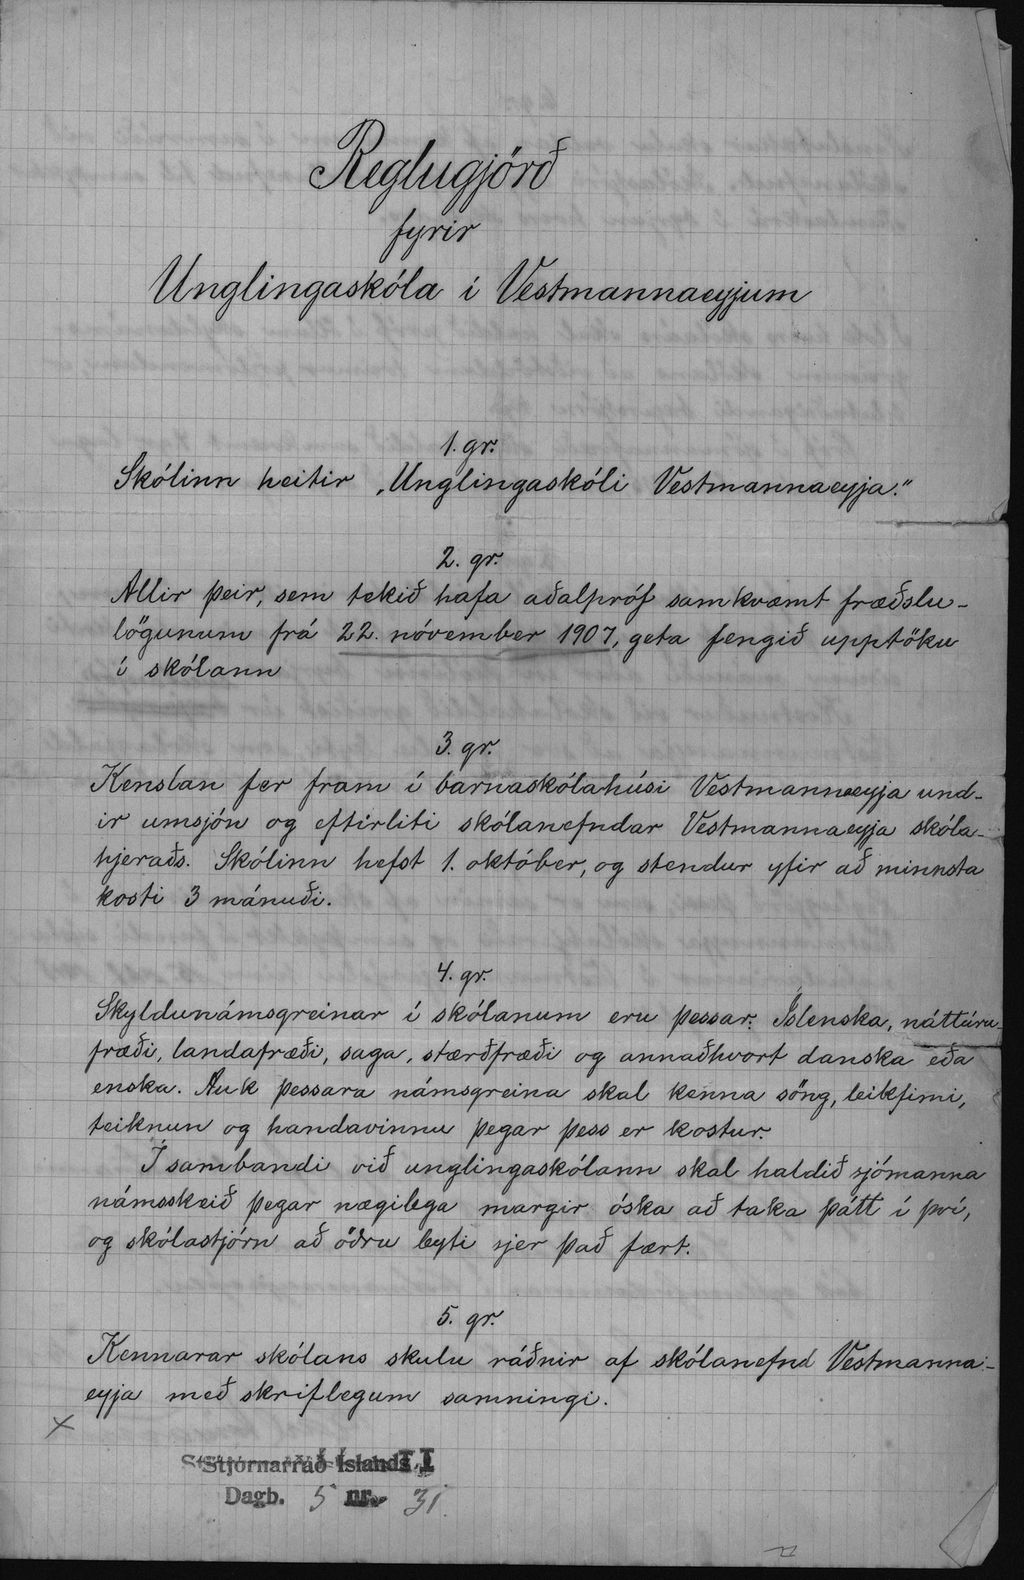 Reglugjörð
fyrir
Unglingaskóla í Vestmannaeyjum
1. gr.
Skólinn heitir „Unglingaskóli Vestmannaeyja."
2. gr.
Allir þeir, sem tekið hafa aðalpróf samkvæmt fræðslu-
lögunum frá 22. nóvember 1907, geta fengið upptöku
í skólann
3. gr.
Kenslan fer fram í barnaskólahúsi Vestmannaeyja und-
ir umsjón og eftirliti skólanefndar Vestmannaeyja skóla-
hjeraðs. Skólinn hefst 1. október, og stendur yfir að minnsta
kosti 3 mánuði.
4. gr.
Skyldunámsgreinar í skólanum eru þessar: Íslenska, náttúru-
fræði, landafræði, saga, stærðfræði og annaðhvort danska eða
enska. Auk þessara námsgreina skal kenna söng, leikfimi,
teiknun og handavinnu þegar þess er kostur.
Í sambandi við unglingaskólann skal haldið sjómanna
námsskeið þegar nægilega margir óska að taka þátt í því,
og skólastjórn að öðru leyti sjer það fært.
5. gr.
Kennarar skólans skulu ráðnir af skólanefnd Vestmanna-
eyja með skriflegum samningi.
Stjórnarráð Íslands II
Dagb. 5 nr. 31